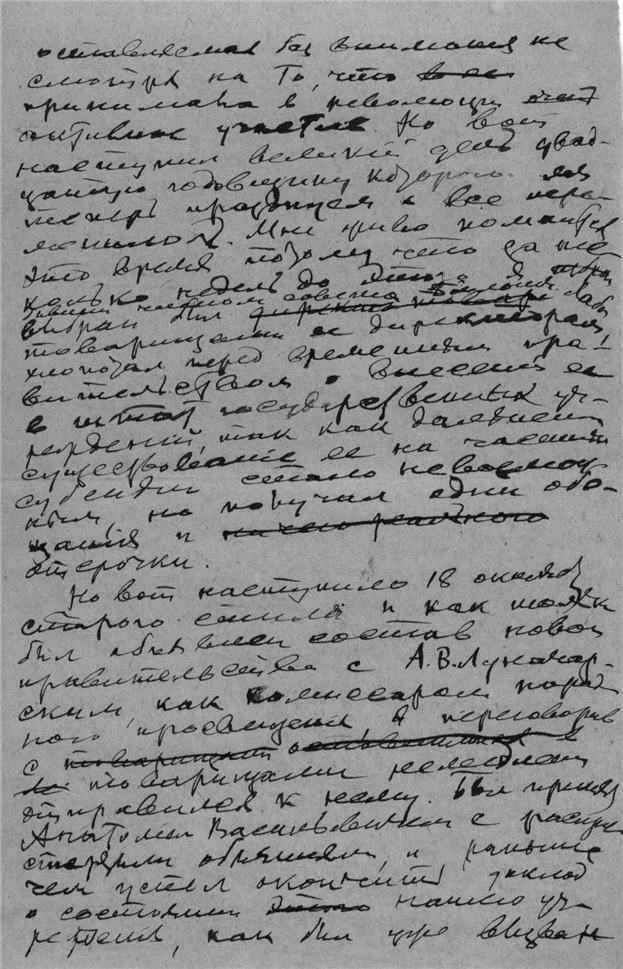 оставляемая без внимания не
смотря на то, что все
принимала в революции
активное участие. Но вот
наступил великий день двад-
цатую годовщину которого мы
теперь празднуем и все пере-
менилось. Мне живо помнится
это время потому что за не
колько недель до этого я
выбран был
товарищами ее директором,
хлопотал перед временным пра-
вительством о внесении ее
в штат государственных уч-
реждений, так как дальнейшее
существование ее на частные
субсидии стало невозмож
ным, но получил одни обе-
щания и ничего реального
отсрочки.
Но вот наступило 18 октября
старого стиля и как только
был объявлен состав нового
правительства с А.В.Луначар-
ским, как комиссаром народ
ного просвещения я переговорив
с товарищами
товарищами немедленно
отправился к нему. Был принят
Анатолием Васильевичем с распро
стертыми объятиями, и раньше
чем успел окончить доклад
о состоянии этого нашего уч-
реждения, как был уже вызван